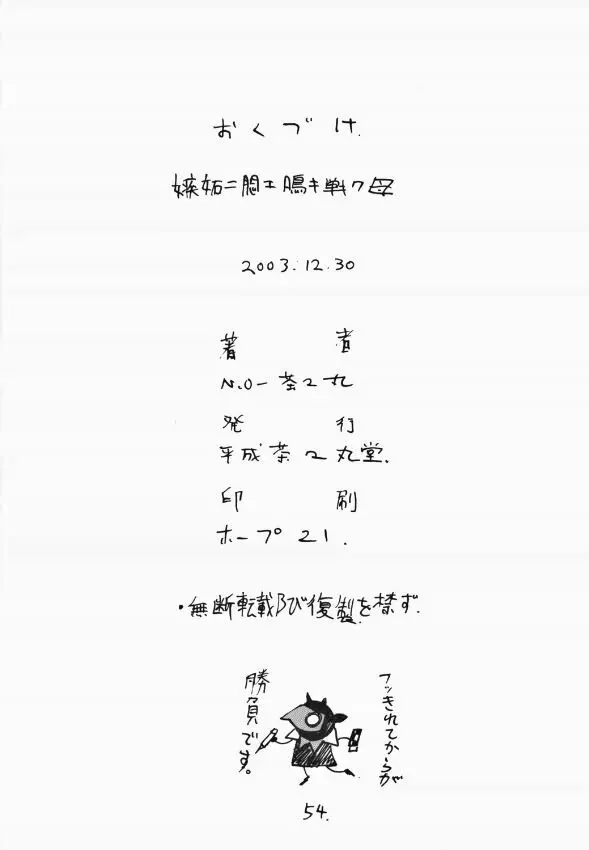 おくづけ.
嫉妬ニ悶エ鳴キ戦ク母
2003.12.30
著 者
N.O-茶々丸
発 行
平成茶々丸堂.
印 刷
ホープ21.
・無断転載及び復製を禁ず.
フッきれてからが
勝負です。
54.